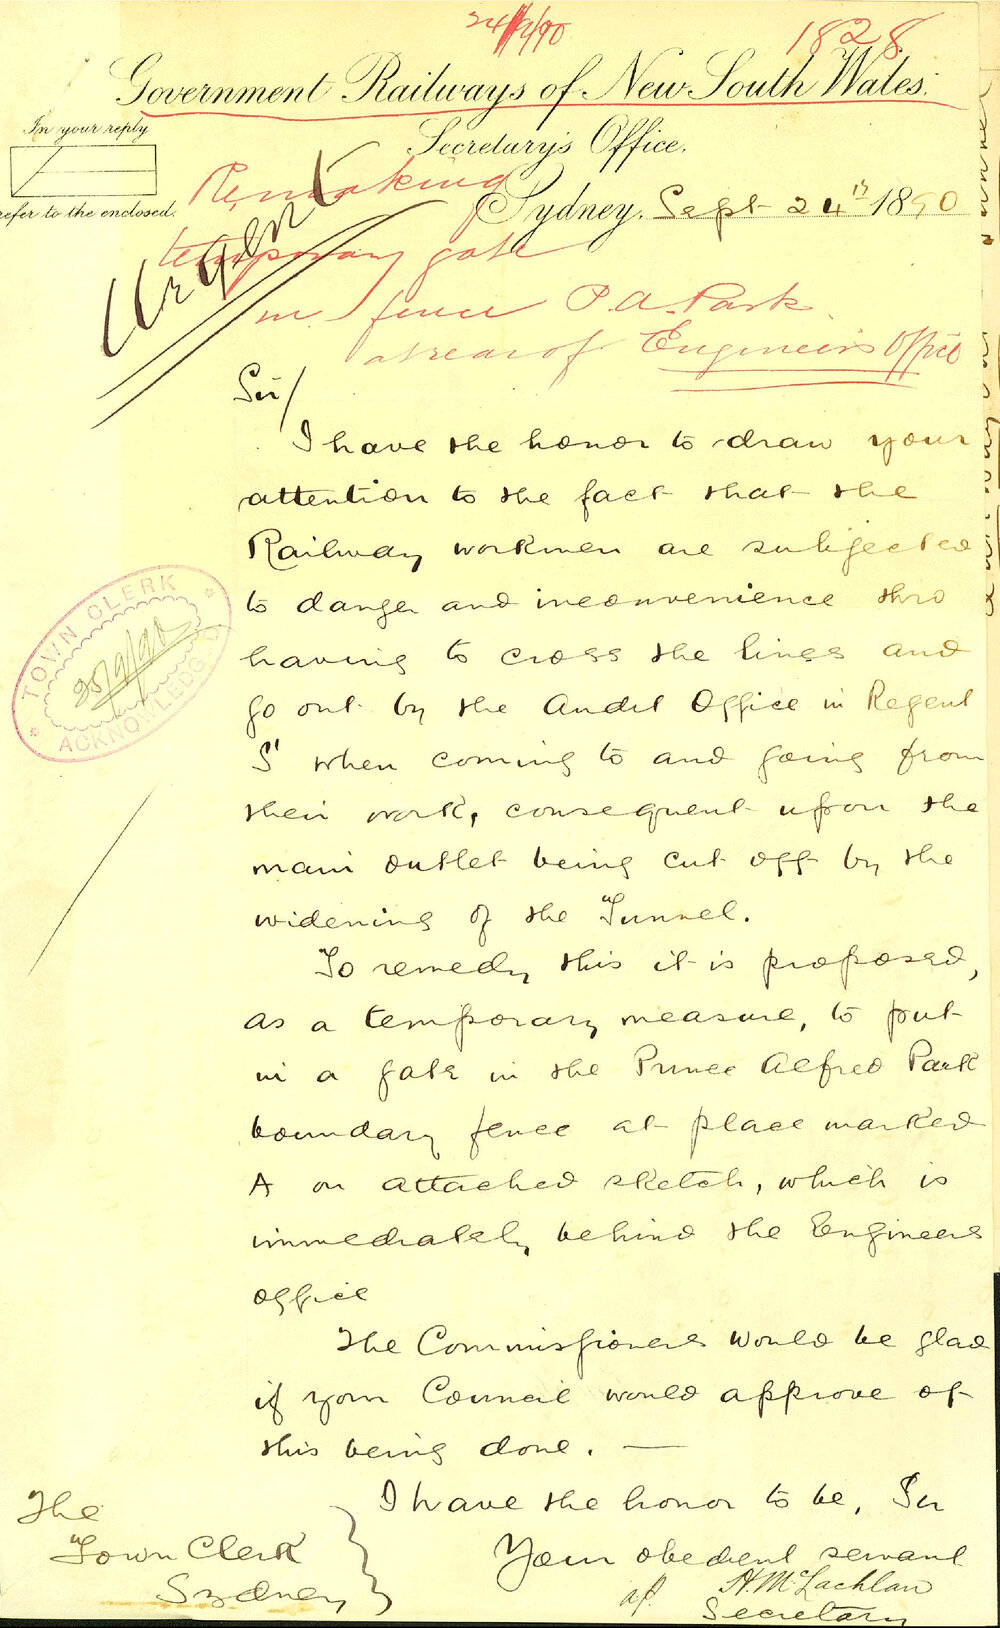 24/9/90
1828
Government Railways of New South Wales.
Secretary's Office.
In your reply
refer to the enclosed.
Sydney, Sept 24th 1890
Urgent
Re making
temporary gate
in fence P.A. Park
at rear of Engineers Office
Sir/
I have the honor to draw your
attention to the fact that the
Railway workmen are subjected
to danger and inconvenience thro
having to cross the lines and
go out by the Audit Office in Regent
St when coming to and going from
their work, consequent upon the
main outlet being cut off by the
widening of the Tunnel.
TOWN CLERK
25/9/90
ACKNOWLEDGED
To remedy this it is proposed,
as a temporary measure, to put
in a gate in the Prince Alfred Park
boundary fence at place marked
A on attached sketch, which is
immediately behind the Engineers
office
The Commissioners would be glad
if your Council would approve of
this being done. —
I have the honor to be, Sir
Your obedient servant
H. McLachlan
Secretary
The
Town Clerk
Sydney